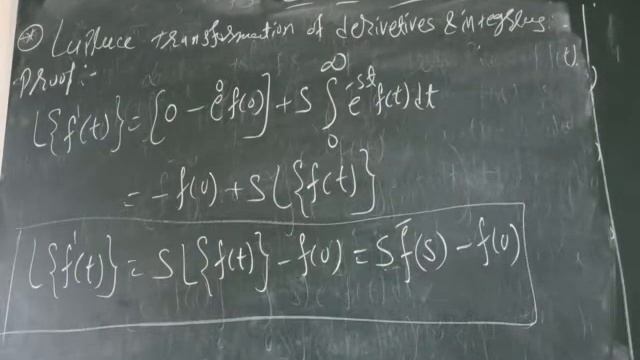 ⊛ Lapluce transformation of derivetives & integrlus :-
Proof :-
L{f'(t)} = [0 - e⁰f(0)] + S ∫₀^∞ e^{-st} f(t) dt
= -f(0) + S L{f(t)}
L{f'(t)} = S L{f(t)} - f(0) = S f̄(s) - f(0)